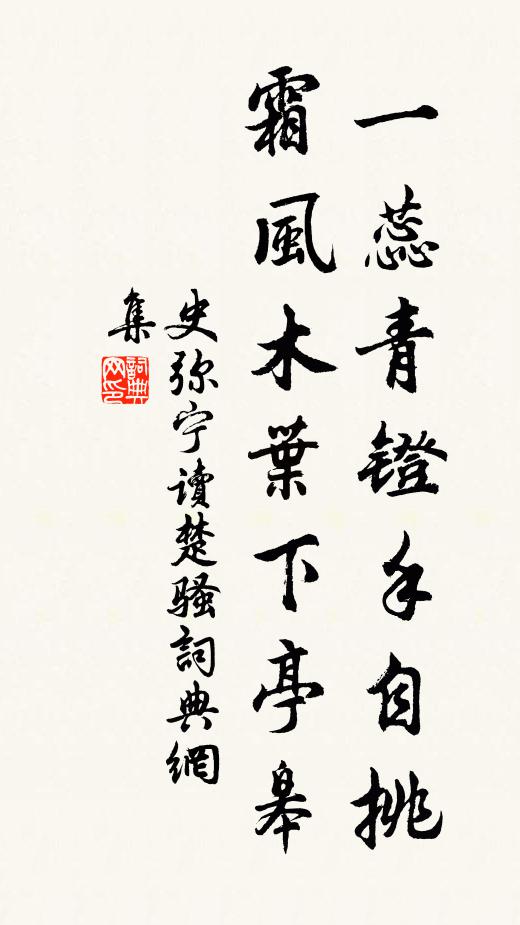 一蕊青镫手自挑
霜風木葉下亭皋
史弥宁讀楚騷詞典網
集
詞典
网印